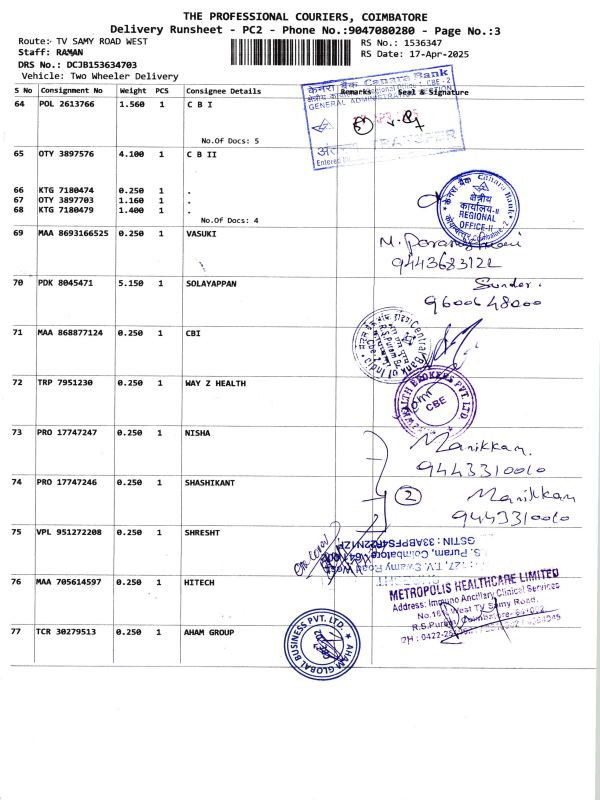 THE PROFESSIONAL COURIERS, COIMBATORE
Delivery Runsheet - PC2 - Phone No.:9047080280 - Page No.:3
Route:- TV SAMY ROAD WEST
Staff: RAMAN
DRS No.: DCJB153634703
Vehicle: Two Wheeler Delivery
RS No.: 1536347
RS Date: 17-Apr-2025
S No Consignment No Weight PCS Consignee Details Remarks Seal & Signature
64 POL 2613766 1.560 1 C B I
No.Of Docs: 5
केनरा बैंक Canara Bank
CBE - 2
GENERAL ADMINISTRATION SECTION
TRANSFER
65 OTY 3897576 4.100 1 C B II
66 KTG 7180474 0.250 1 .
67 OTY 3897703 1.160 1 .
68 KTG 7180479 1.400 1 .
No.Of Docs: 4
केनरा बैंक Canara Bank
क्षेत्रीय
कार्यालय-II
REGIONAL
OFFICE-II
Coimbatore-2
69 MAA 8693166525 0.250 1 VASUKI
9443683122
70 PDK 8045471 5.150 1 SOLAYAPPAN
Sunder.
9600648000
71 MAA 868877124 0.250 1 CBI
Central Bank of India
R.S. Puram Br.
Cbe-2
72 TRP 7951230 0.250 1 WAY Z HEALTH
WAYZHEALTH BROKERS PVT. LTD.
CBE
73 PRO 17747247 0.250 1 NISHA
Manikkam.
9443310010
74 PRO 17747246 0.250 1 SHASHIKANT
2
Manikkam
9443310010
75 VPL 951272208 0.250 1 SHRESHT
127, T.V. Swamy Road West
R.S. Puram, Coimbatore
76 MAA 705614597 0.250 1 HITECH
METROPOLIS HEALTHCARE LIMITED
Address: Immuno Ancillary Clinical Services
West TV Samy Road,
R.S.Puram, Coimbatore- 641002
77 TCR 30279513 0.250 1 AHAM GROUP
AHAM GLOBAL BUSINESS PVT. LTD.